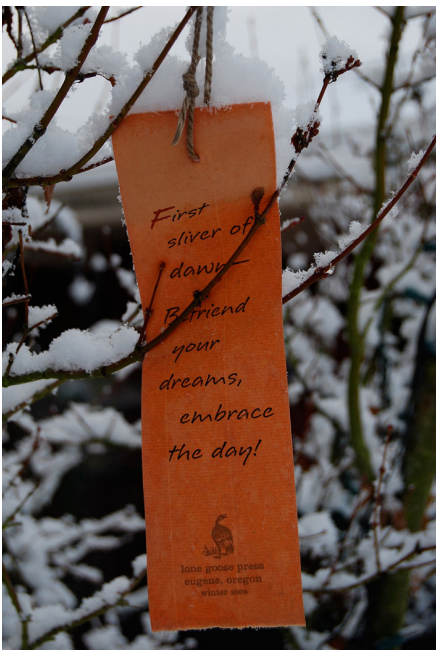 First
sliver of
dawn—
Befriend
your
dreams,
embrace
the day!
lone goose press
eugene, oregon
winter